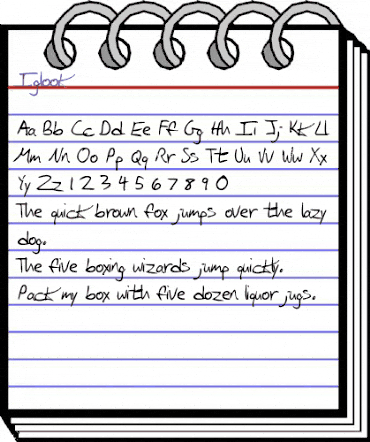 Igloot
Aa Bb Cc Dd Ee Ff Gg Hh Ii Jj Kk Ll
Mm Nn Oo Pp Qq Rr Ss Tt Uu Vv Ww Xx
Yy Zz 1 2 3 4 5 6 7 8 9 0
The quick brown fox jumps over the lazy
dog.
The five boxing wizards jump quickly.
Pack my box with five dozen liquor jugs.